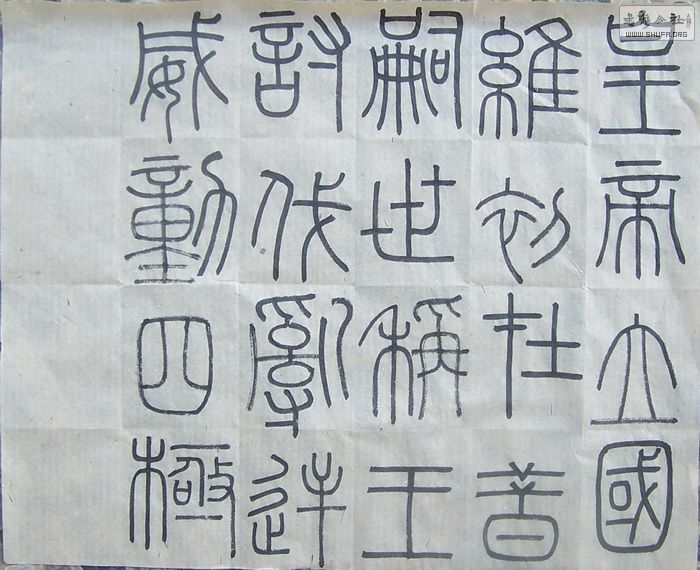 皇帝立國
維初在昔
嗣世稱王
討伐亂逆
威動四極
書法公社
WWW.SHUFA.ORG